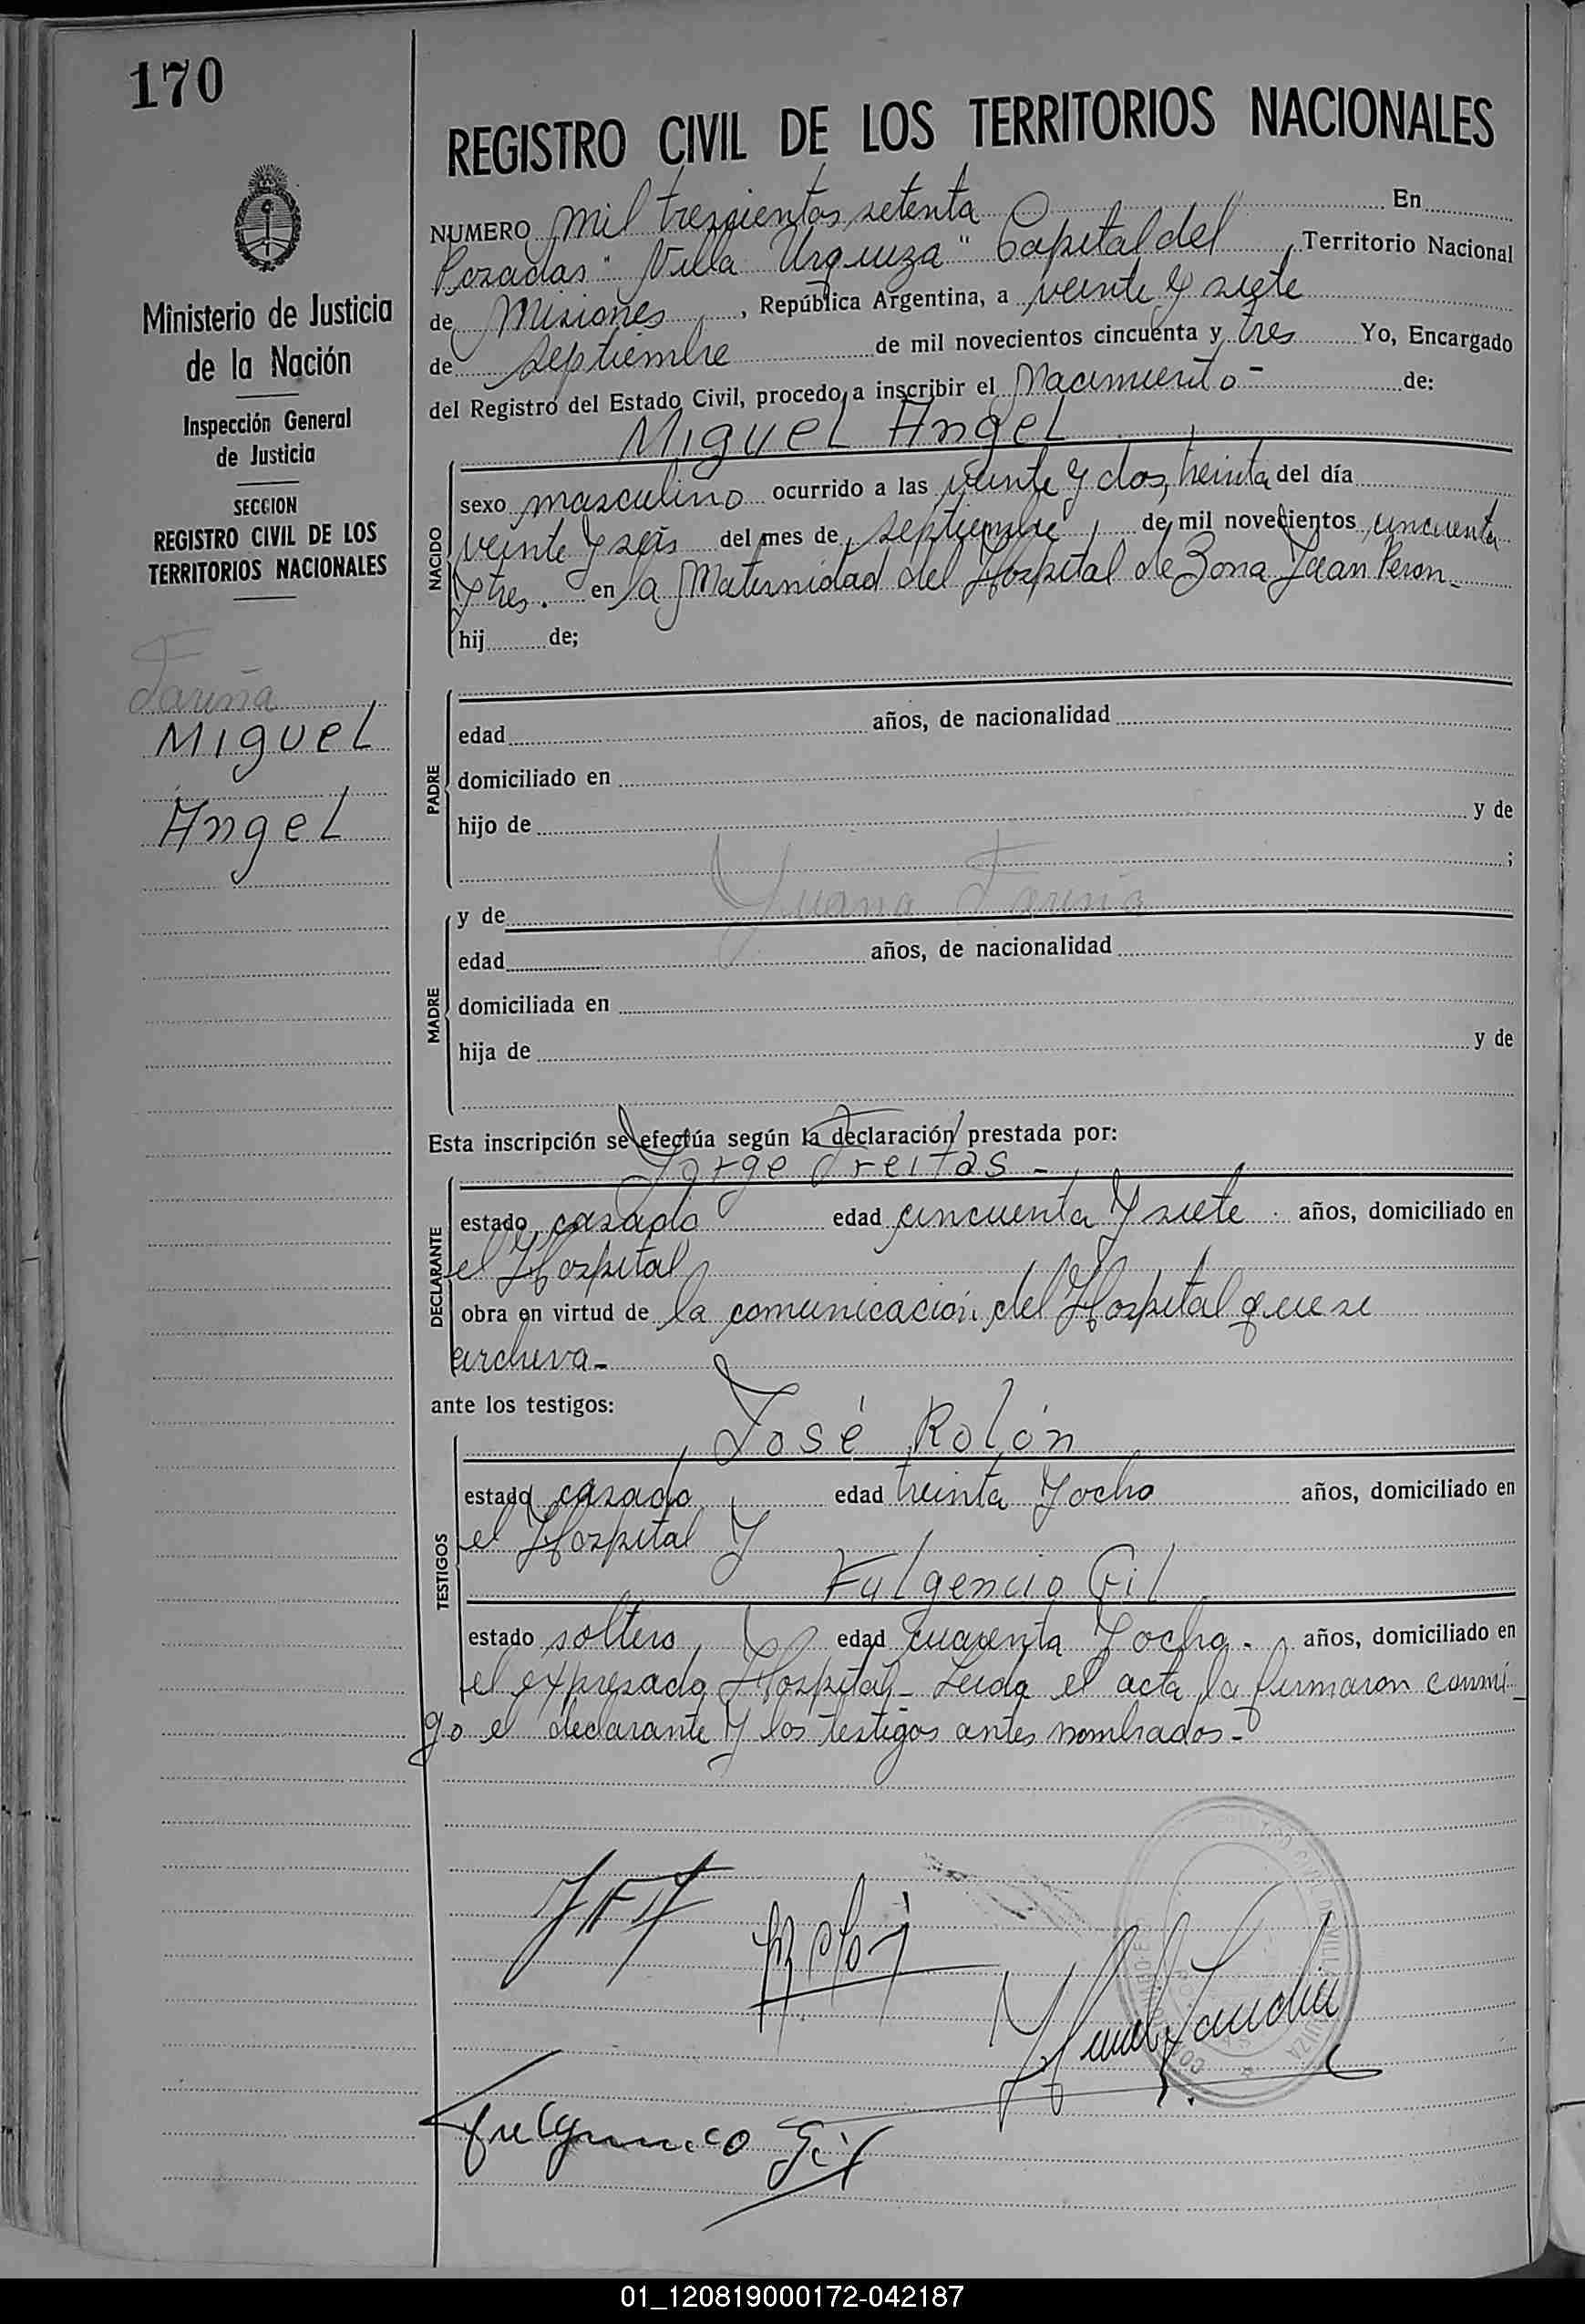 170
REGISTRO CIVIL DE LOS TERRITORIOS NACIONALES
Ministerio de Justicia
de la Nación
Inspección General
de Justicia
SECCION
REGISTRO CIVIL DE LOS
TERRITORIOS NACIONALES
Fariña
Miguel
Angel
NUMERO mil trescientos setenta En
Posadas "Villa Urquiza" Capital del Territorio Nacional
de Misiones, República Argentina, a veinte y siete
de septiembre de mil novecientos cincuenta y tres Yo, Encargado
del Registro del Estado Civil, procedo a inscribir el Nacimiento - de:
Miguel Angel
NACIDO
sexo masculino ocurrido a las veinte y dos, treinta del día
veinte y seis del mes de septiembre, de mil novecientos cincuenta
y tres. en la Maternidad del Hospital de Zona Juan Peron -
hij de;
PADRE
edad años, de nacionalidad
domiciliado en
hijo de y de
;
MADRE
y de Juana Fariña
edad años, de nacionalidad
domiciliada en
hija de y de
Esta inscripción se efectúa según la declaración prestada por:
Jorge Freitas -
DECLARANTE
estado casado edad cincuenta y siete años, domiciliado en
el Hospital
obra en virtud de la comunicación del Hospital que se
archiva -
ante los testigos:
José Rolón
TESTIGOS
estado casado, edad treinta y ocho años, domiciliado en
el Hospital y
Fulgencio Gil
estado soltero, edad cuarenta y ocho - años, domiciliado en
el expresado Hospital - Leída el acta la firmaron conmi-
go el declarante y los testigos antes nombrados -
Fulgencio Gil
01_120819000172-042187